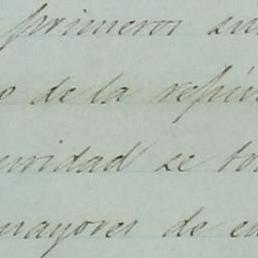 primeros
o de la repú
uridad se to
mayores de e